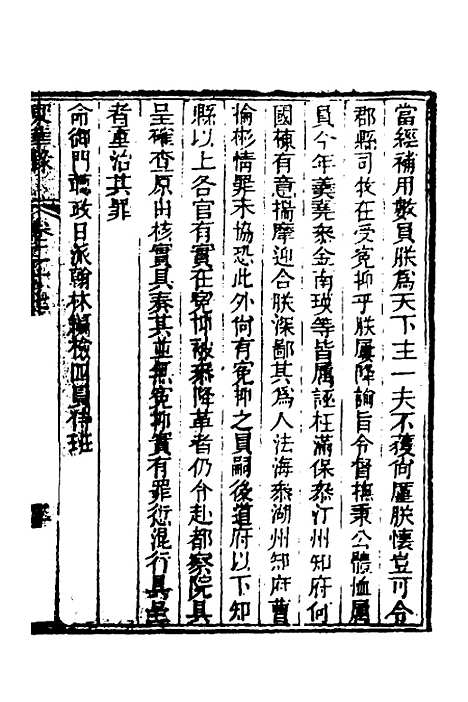 當經補用數員朕爲天下主一夫不獲尙厪朕懷豈可令
郡縣司牧在受寃抑乎朕屢降諭旨令督撫秉公體恤屬
員今年義堯叅金南瑛等皆屬誣枉滿保叅汀州知府何
國棟有意揣摩迎合朕深鄙其爲人法海叅湖州知府曹
掄彬情罪未協恐此外尙有寃抑之員嗣後道府以下知
縣以上各官有實在寃抑被叅降革者仍令赴都察院具
呈確查原由核實具奏其並無寃抑實有罪愆混行具呈
者重治其罪
命御門聽政日派翰林編檢四員侍班
東華錄